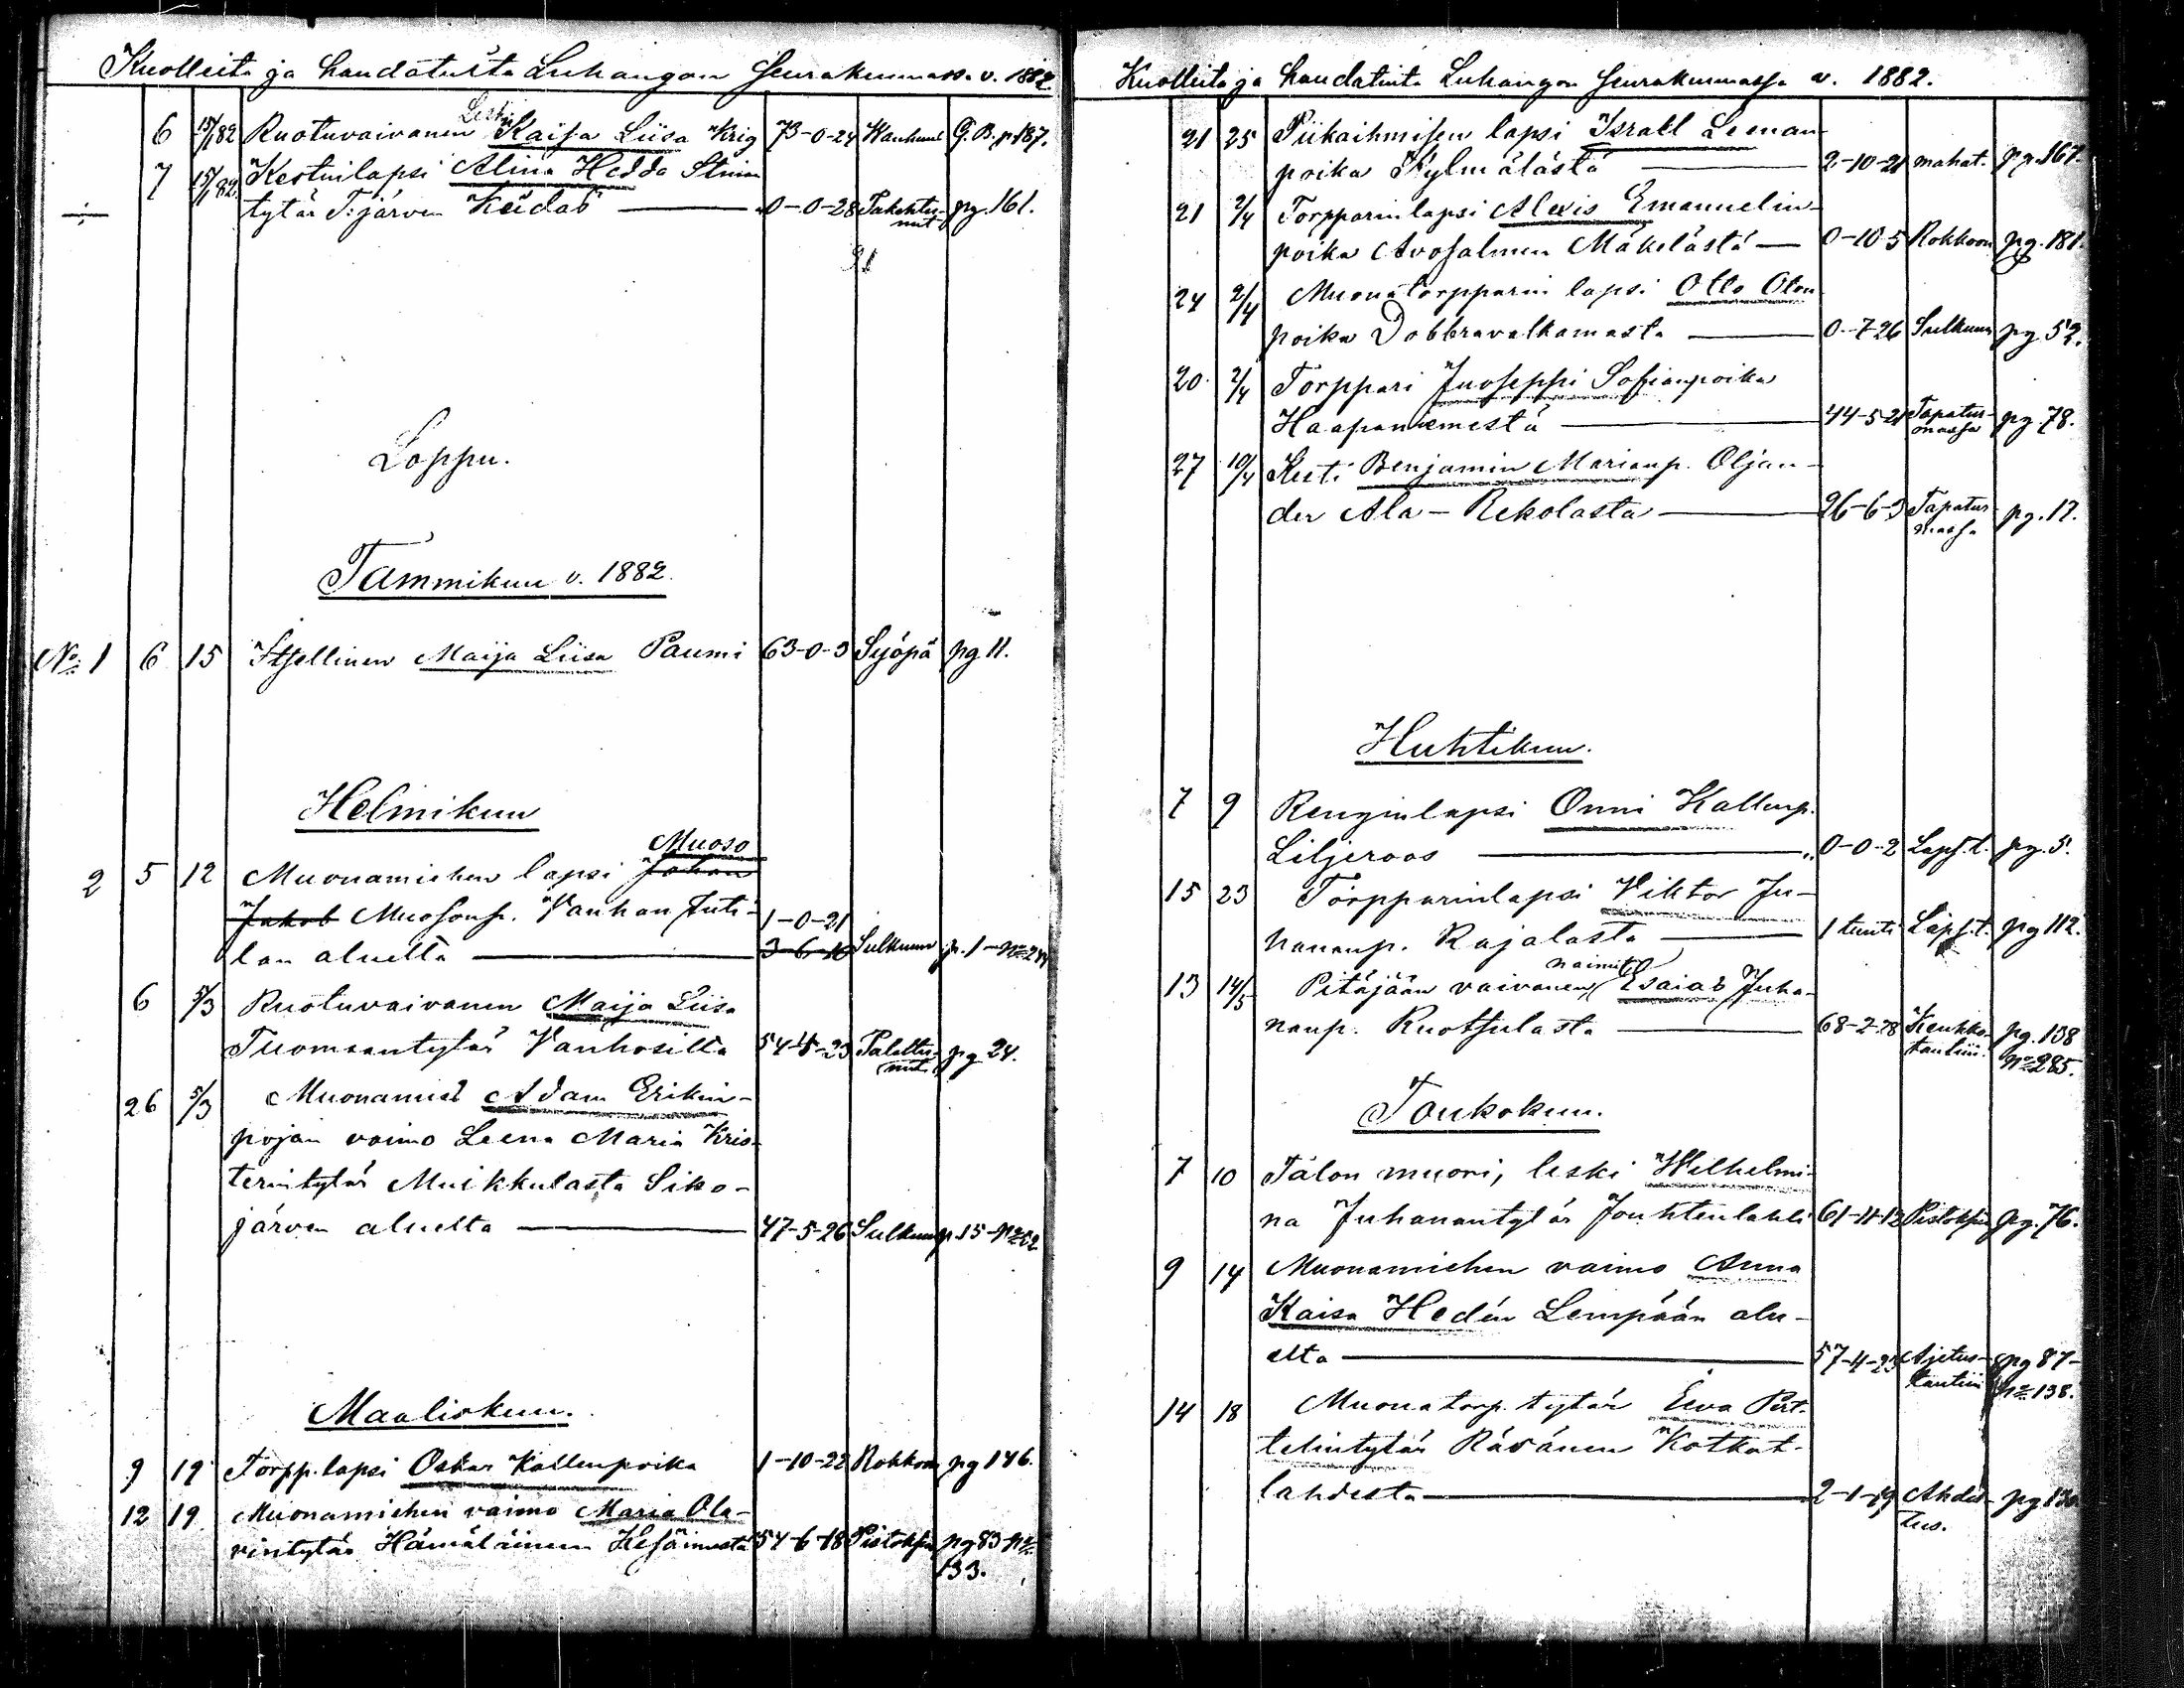 Kuolleita ja haudatuita Luhangan seurakunnassa v. 1882.
Leski
6 15/1 82 Ruotuvaivanen Kaisa Liisa Krig 73-0-24 Wanhuus G.B.p.187.
7 15/1 82 Kestinlapsi Alina Hedda Stiina
tytär T:järven Keidas 0-0-28 Tukehtu- pg. 161.
nut
21
Loppu.
Tammikuu v. 1882.
No. 1 6 15 Itsellinen Maija Liisa Paumi 63-0-3 Syöpä pg 11.
Helmikuu
Muoso
2 5 12 Muonamiehen lapsi Johan
Jakob Muosonp. Vanhan Juti- 1-0-21
lan aluelta 3-6-10 Sulkuun p. 1-No 244
6 5/3 Ruotuvaivanen Maija Liisa
Tuomaantytär Vanhosilta 54-5-23 Palettu- pg 24.
nut
26 5/3 Muonamies Adam Erikin-
pojan vaimo Leena Maria Kris-
terintytär Muikkulasta Siko-
järven aluelta 47-5-26 Sulkuun p. 15-No 52
Maaliskuu.
9 19 Torpp. lapsi Oskar Kallenpoika 1-10-22 Rokkoon pg 146.
12 19 Muonamiehen vaimo Maria Ola-
vintytär Hämäläinen 54-6-18 Pistoksiin pg 83 No
133.
Kuolleita ja haudatuita Luhangon seurakunnassa v. 1882.
21 25 Piikaihmisen lapsi Israel Leenan-
poika Kylmälästä 2-10-21 mahat. pg. 167.
21 2/4 Torpparinlapsi Alexis Emanuelin-
poika Avosalmen Mäkelästä 0-10-5 Rokkoon pg. 181.
24 2/4 Muonatorpparin lapsi Otto Oton
poika Dobbravalkamasta 0-7-26 Sulkuun pg. 52.
20. 2/4 Torppari Juoseppi Sofianpoika
Haapaniemestä 44-5-21 Tapatur- pg. 78.
massa
27 10/4 Kesti Benjamin Marianp. Oljan-
der Ala-Rekolasta 26-6-3 Tapatur- pg. 17.
massa
Huhtikuu.
7 9 Renginlapsi Onni Kallenp.
Liljeroos 0-0-2 Laps.t. pg. 5.
15 23 Torpparinlapsi Viktor Ju-
hananp. Rajalasta 1 tunti Laps.t. pg 112.
nainut
13 14/5 Pitäjään vaivanen Esaias Juha-
nanp. Ruotsulasta 68-2-28 Keuhko- pg. 138
tautiin. No 285.
Toukokuu.
7 10 Talon muori, leski Wilhelmi-
na Juhanantytär Jouhtenlahti 61-11-12 Pistoksiin pg. 76.
9 14 Muonamiehen vaimo Anna
Kaisa Hedén Lempään alu-
elta 57-4-23 Ajetus- pg 87-
tautiin No 138.
14 18 Muonatorp. tytär Eeva Pert-
telintytär Räsänen Kotkat-
lahdesta 2-1-19 Ahdis- pg 130
tus.